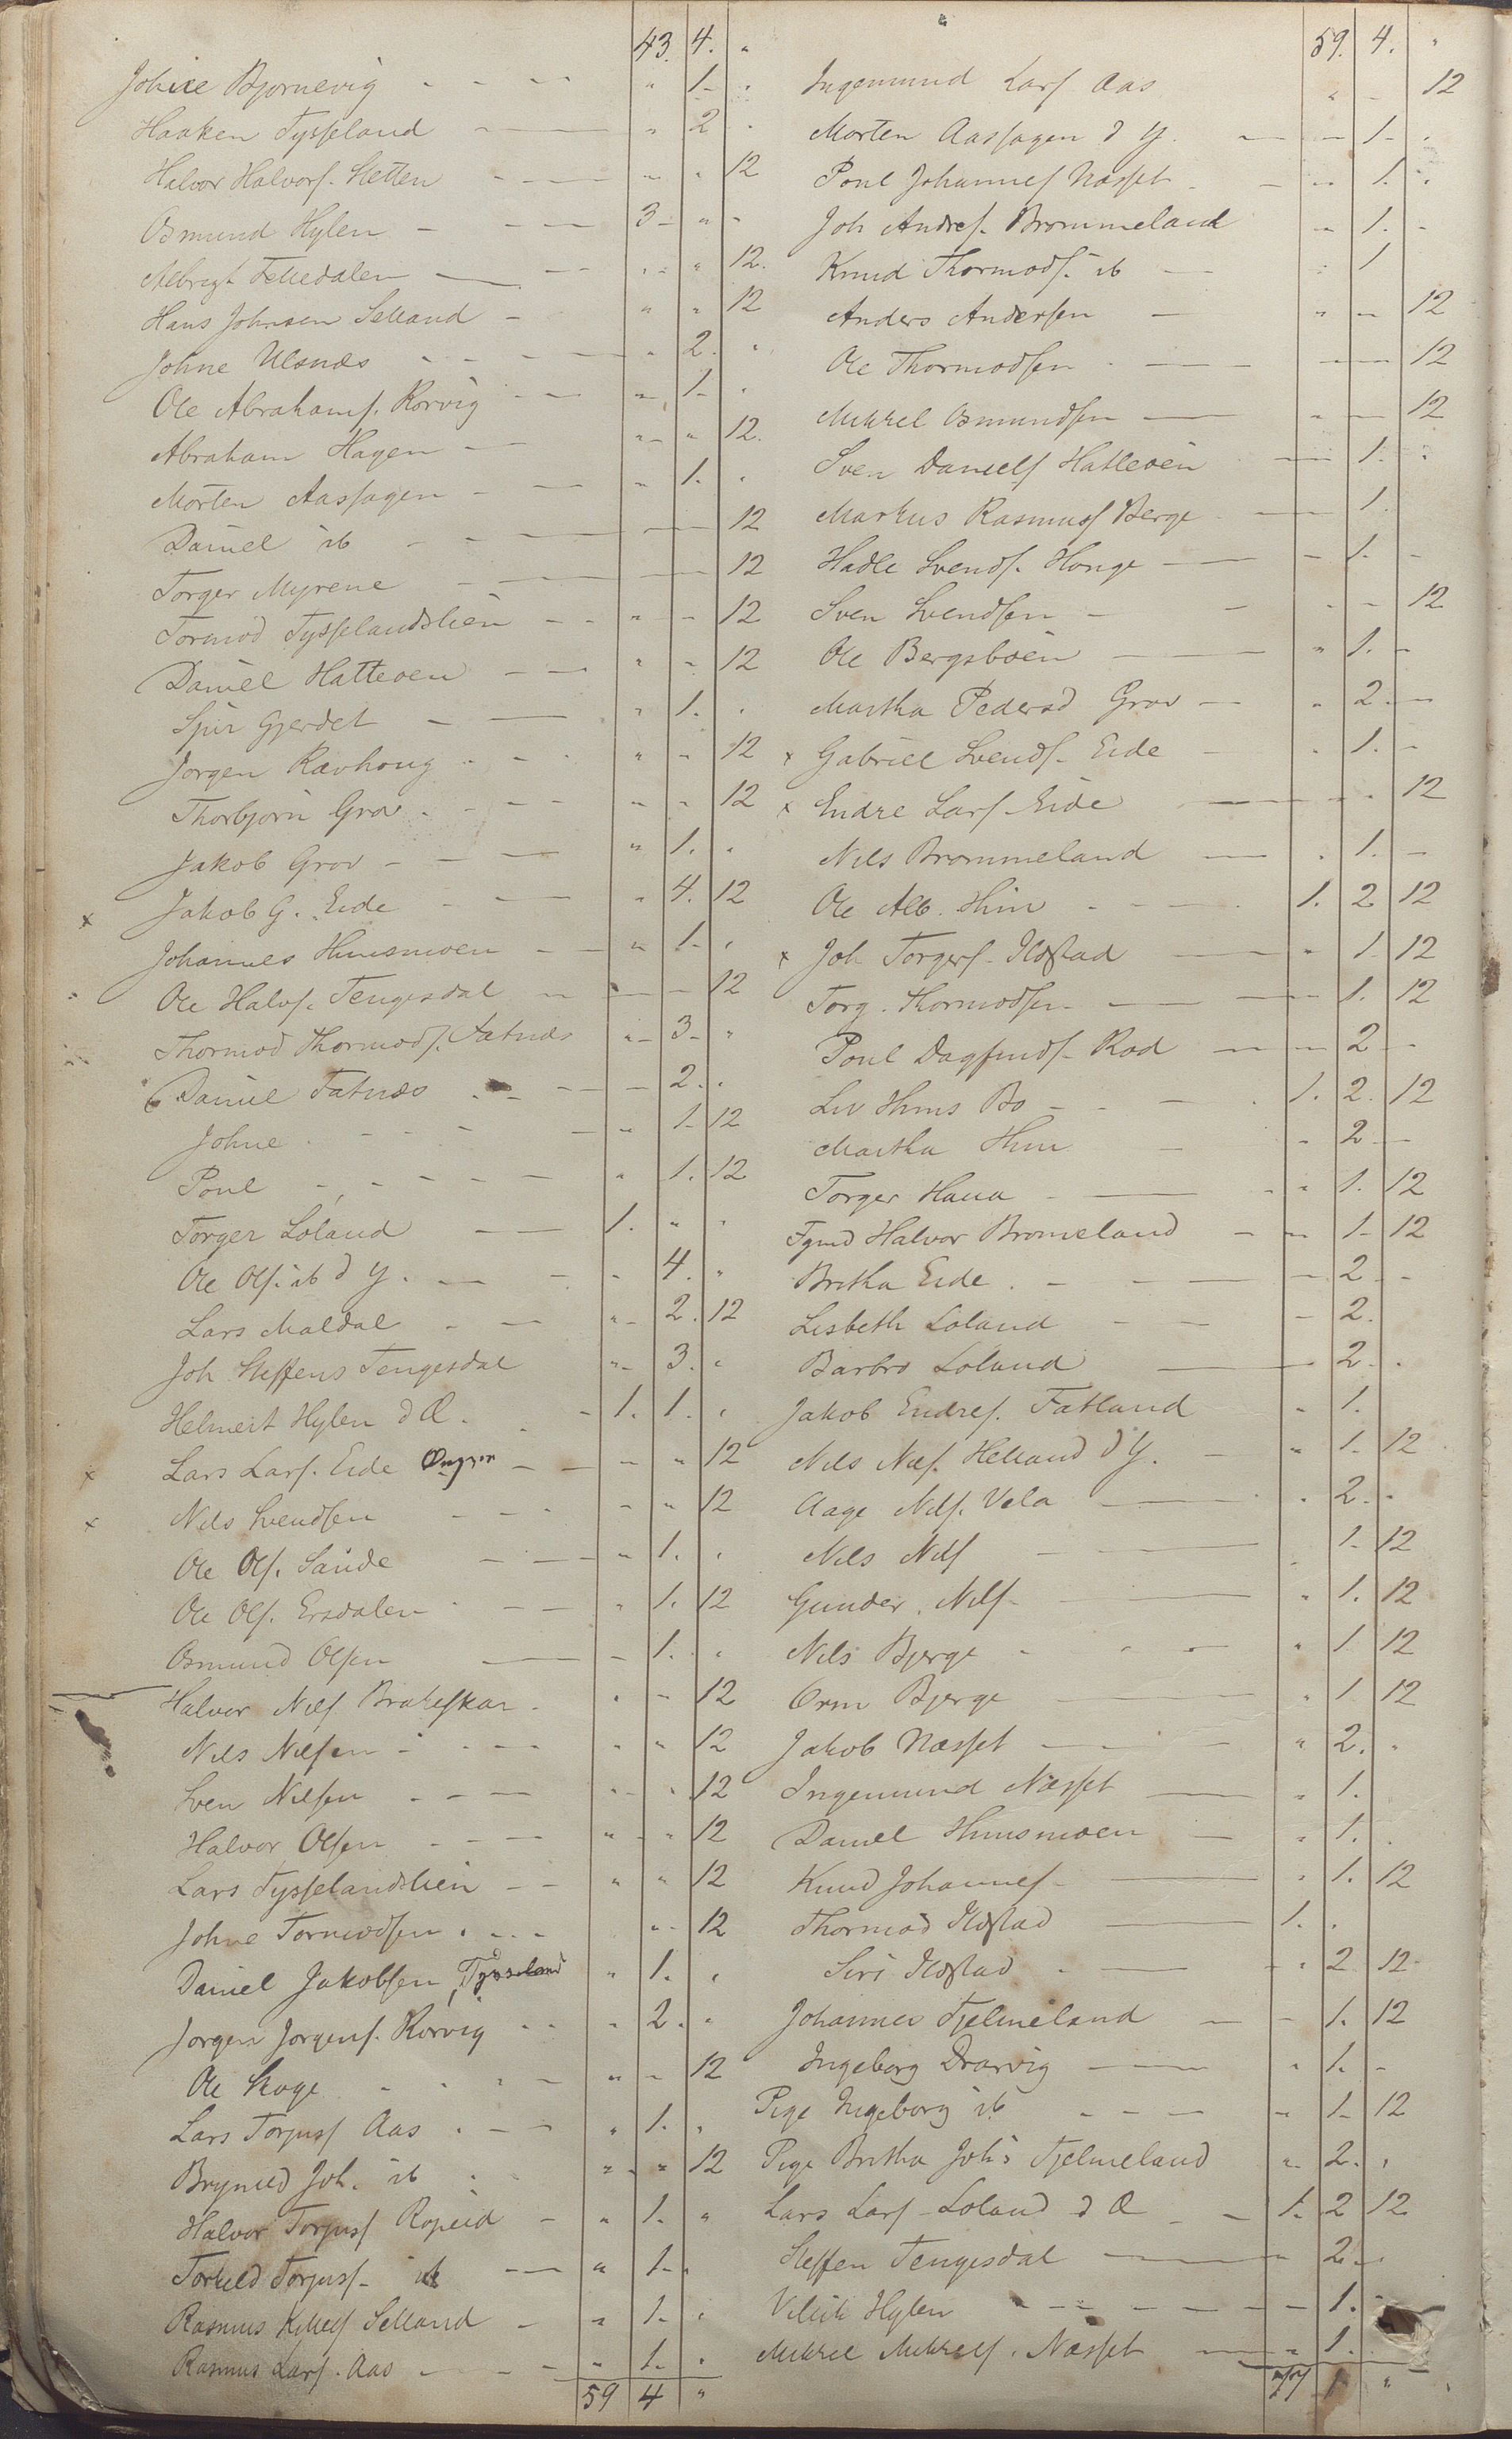 43. 4. "
Johne Bjørnevig - - - - " 1 - "
Haaken Tysseland - - " 2 "
Halvor Halvors. Stetten - - " " 12
Osmund Hylen - - - 3 - " -
Albregt Fattedalen - - " " 12.
Hans Johnsen Selland - " " 12
Johne Ulsnæs - - - " 2. "
Ole Abrahams. Korvig - - " 1 - "
Abraham Hagen - - " " 12.
Morten Aashagen - - " 1. "
Daniel ib - - - 12
Torger Myrene - - - 12
Tormod Tysselandslien - - " - 12
Daniel Hatteøen - - " - 12
Spir Gjerdet - - " 1. "
Jørgen Ravhoug - - - " - 12
Thorbjørn Grov - - - " - 12
Jakob Grov - - - " 1. "
x Jakob G. Eide - - - " 4. 12
Johannes Huusmoen - - " 1 - "
Ole Halvs. Tengesdal - - - 12
Thormod Thormods. Fatnæs " 3 - "
Daniel Fatnæs - - - 2. "
Johne - - - - " 1 - 12
Poul - - - - - " 1. 12
Torger Løland - - 1. " "
Ole Ols. ib d y. - - " 4. "
Lars Maldal - - - " 2. 12
Joh Steffens Tengesdal " 3. "
Helmert Hylen d Æ. - 1. 1. "
x Lars Lars. Eide - - " " 12
x Nils Svendsen - - - - " 12
Ole Ols. Sande - - - " 1. "
Ole Ols. Ersdalen - - - " 1. 12
Osmund Olsen - - 1. "
Halvor Nils. Brakeskar - " - 12
Nils Nilsen - - - - " " 12
Sven Nilsen - - - " " 12
Halvor Olsen - - - " " 12
Lars Tysselandslien - - " " 12
Johne Tormodsen - - - " - 12
Daniel Jakobsen, Tysseland " 1. "
Jørgen Jørgens. Korvig - - " 2. "
Ole Skoge - - - - " - 12
Lars Torjuss Aas - - - " 1. "
Brynild Joh. ib - " " 12
Halvor Torjuss Ropeid - " 1. "
Torkild Torjuss - ib - " 1. "
Rasmus Kittels Selland - " 1. "
Rasmus Lars. Aas - - - " 1. "
59 4 "
59. 4. "
Ingemund Lars Aas " - 12
Morten Aashagen d y. - - 1. "
Poul Johannes Næsset - - " 1. "
Joh Andres. Brommeland " 1. -
Knud Thormods. ib - " 1
Anders Andersen - " - 12
Ole Thormodsen - - - 12
Mikkel Osmundsen - " - 12
Sven Daniels Hatteøen - 1. "
Markus Rasmuss Berge - 1.
Hadle Svends. Honge - - 1. -
Sven Svendsen - - " - 12
Ole Bergsbøen - " 1. -
Martha Pedersd Grov - " 2. -
x Gabriel Svends. Eide - " 1. -
x Endre Lars - Eide - - " 12
Nils Brommeland - " 1. -
Ole Alb. Hiim - - - 1. 2 12
x Joh Torgers. Ilstad - " 1. 12
Torg. Thormodsen - - 1. 12
Poul Dagfinds - Rød - - 2 -
Liv Hiims Bø - - - 1. 2. 12
Martha Hiim - " 2 -
Torger Haua - - " 1. 12
Tgmd Halvor Bromeland - - 1 - 12
Britha Eide. - - - 2 -
Lisbeth Løland - - - 2.
Barbro Løland - 2. "
Jakob Endres. Fatland " 1.
Nils Nils. Helland d y. - " 1. 12
Aage Nils. Vela - " 2. "
Nils Nils - - " 1. 12
Gunder. Nils - - " 1. 12
Nils Bjerge - - - " 1. 12
Orm Bjerge - " 1. 12
Jakob Næsset - - " 2. "
Ingemund Næsset - " 1.
Daniel Huusmoen - " 1. "
Knud Johannes - - " 1. 12
Thormod Ilstad - 1. "
Siri Ilstad - - " 2. 12
Johannes Fjelmeland - - 1. 12
Ingeborg Drarvig - " 1. -
Pige Ingeborg ib - - - - 1. 12
Pige Britha Joh's Fjelmeland " 2. "
Lars Lars - Løland d Æ - - 1. 2 12
Steffen Tengesdal - - 2. -
Hylen - - - - - 1. -
Mikkel Mikkels. Næsset - " 1.
77 1 "